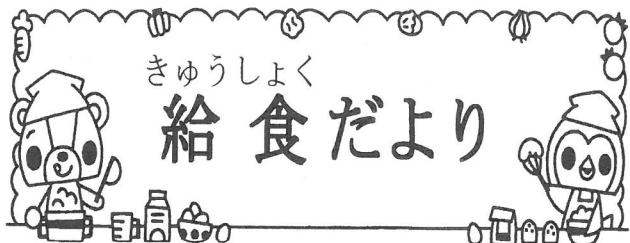 きゅうしょく
給食だより